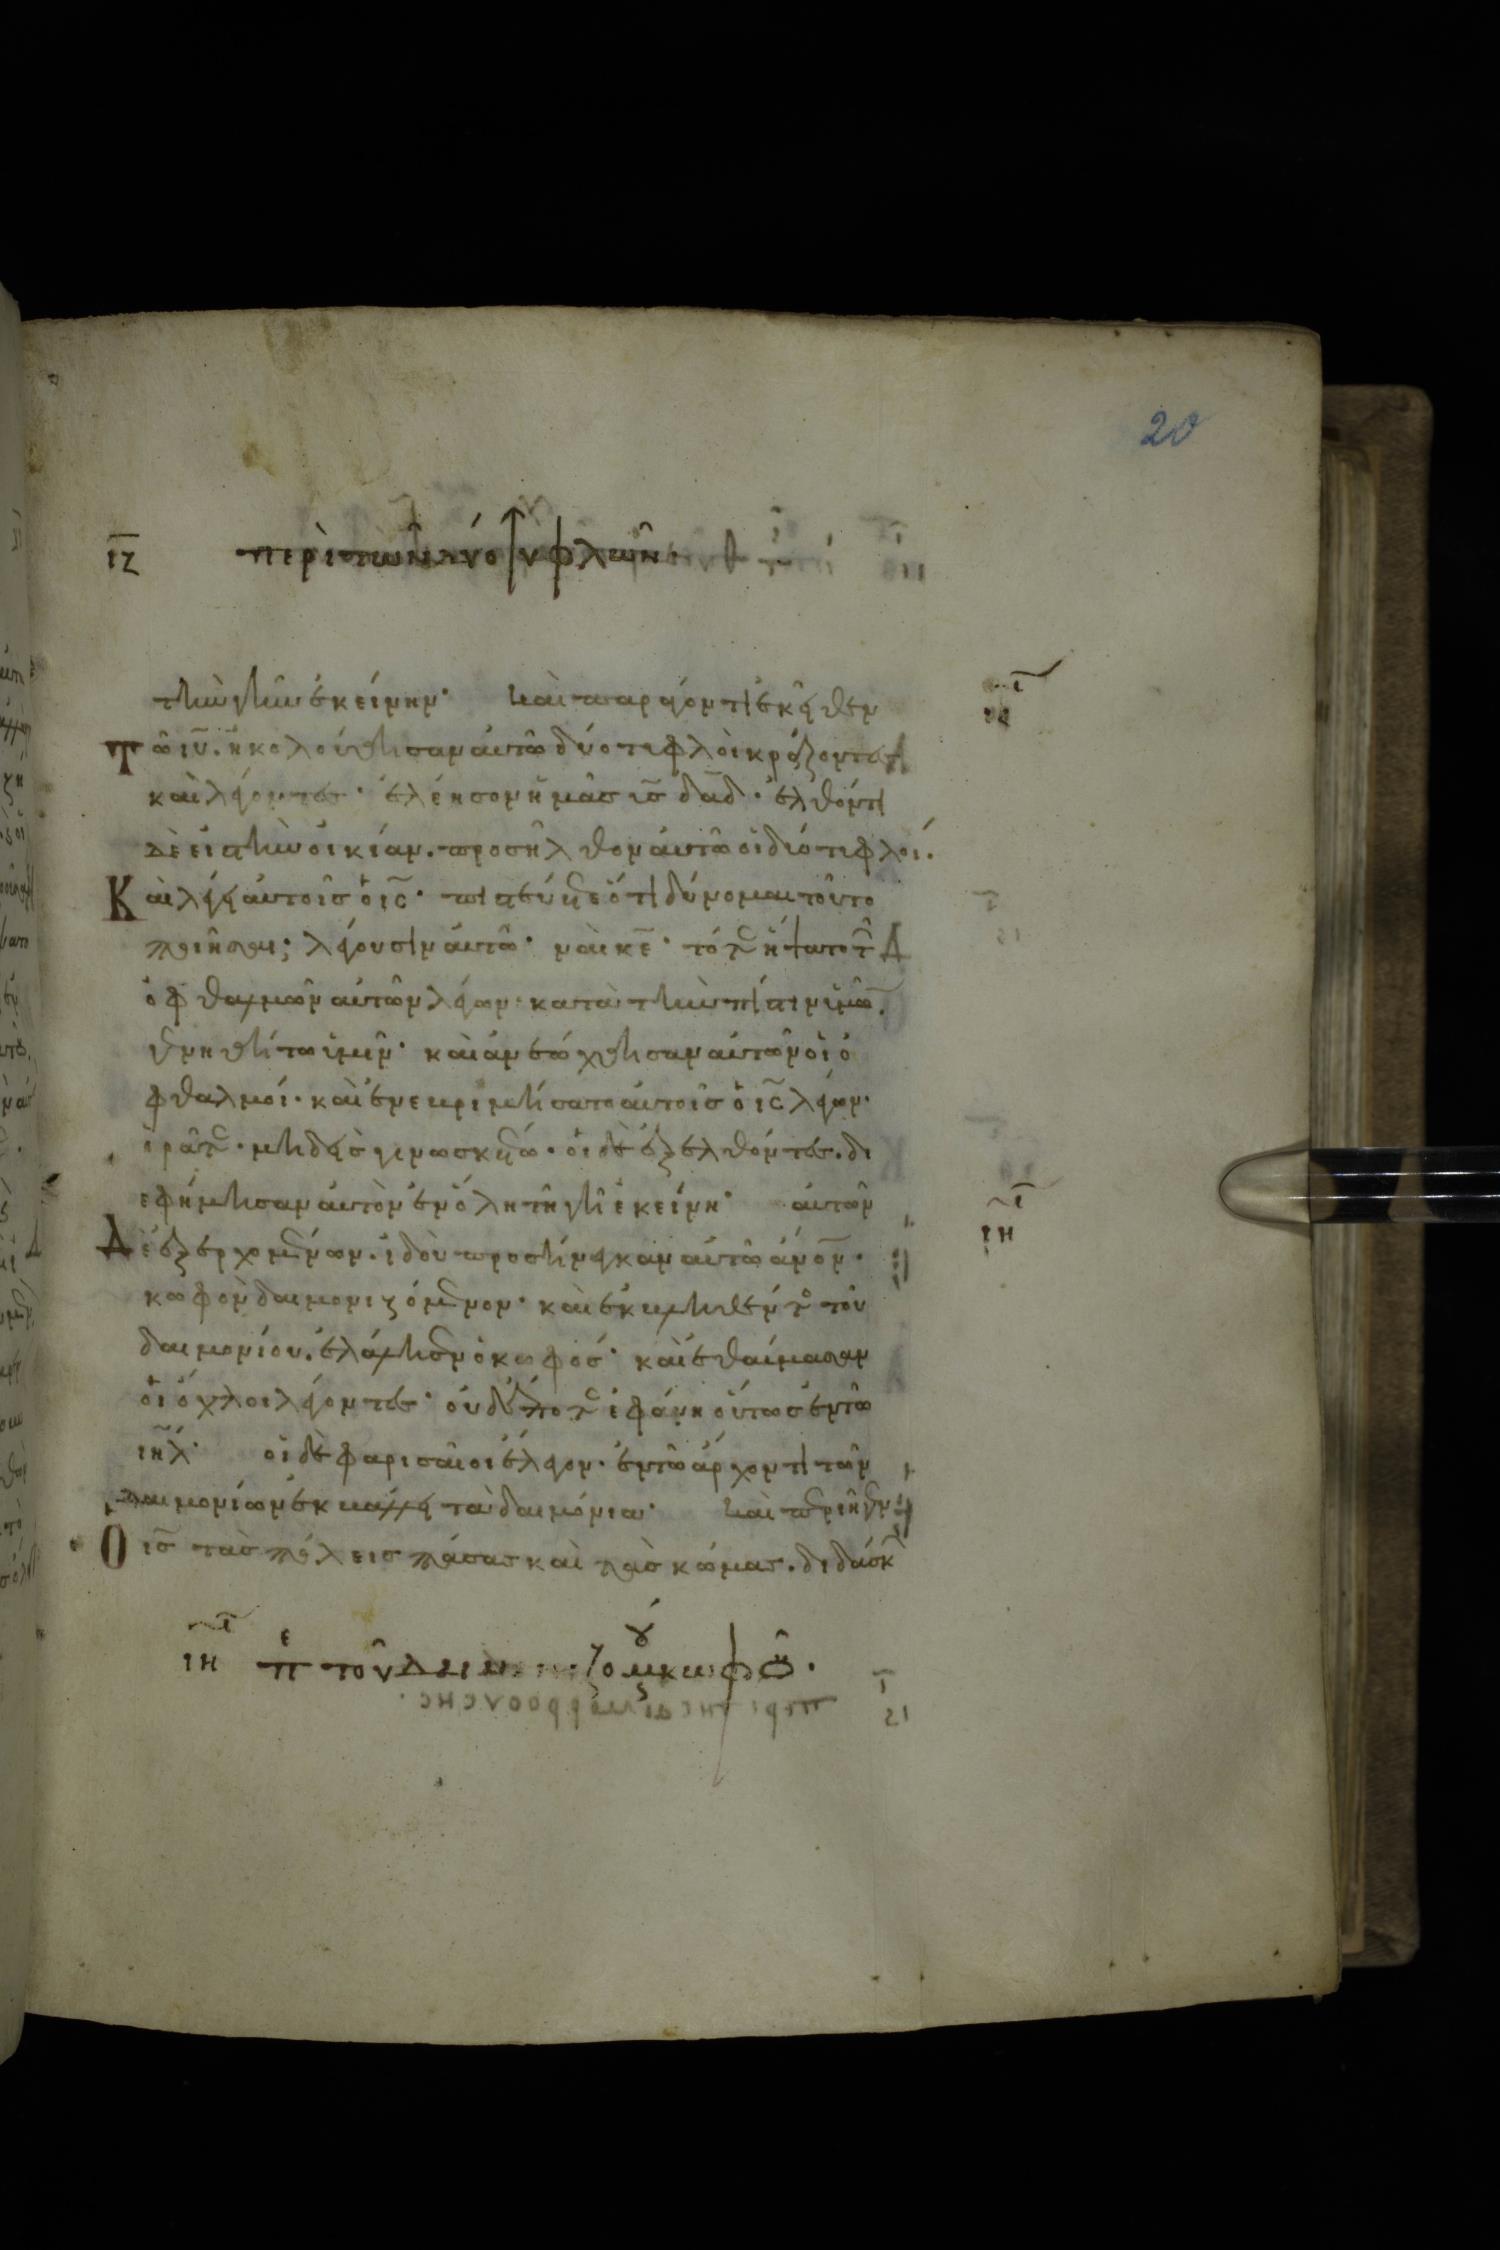 20
ιζ περὶ τῶν δύο τυφλῶν·
τὴν γῆν ἐκείνην· καὶ παράγοντι ἐκεῖθεν
Τῶ ιῦ. ἠκολούθησαν αὐτῶ δύο τυφλοὶ κράζοντες
καὶ λέγοντες· ἐλέησον ἡμᾶς ις̅ δα̅δ· ἐλθόντι
δὲ εἰς τὴν οἰκίαν. προσῆλθον αὐτῶ οἱ δύο τυφλοί.
Καὶ λέγει αὐτοῖς ὁ ις̅· πιστεύετε ὅτι δύναμαι τοῦτο
ποιῆσαι; λέγουσιν αὐτῶ· ναὶ κε̅· τότε ἥψατο τῶν
ὀφθαλμῶν αὐτῶν λέγων· κατὰ τὴν πίστιν ὑμῶν.
γενηθήτω ὑμῖν· καὶ ἀνεώχθησαν αὐτῶν οἱ ὀ
φθαλμοί. καὶ ἐνεβριμήσατο αὐτοῖς ὁ ις̅ λέγων.
ὁρᾶτε. μηδεὶς γινωσκέτω. οἱ δὲ ἐξελθόντες. δι
εφήμησαν αὐτὸν ἐν ὅλη τῆ γῆ ἐκείνη· αὐτῶν
Δὲ ἐξερχομένων. ἰδοὺ προσήνεγκαν αὐτῶ ἄνο̅ν.
κωφὸν δαιμονιζόμενον· καὶ ἐκβληθέντος τοῦ
δαιμονίου. ἐλάλησεν ὁ κωφός· καὶ ἐθαύμασαν
οἱ ὄχλοι λέγοντες· οὐδέποτε ἐφάνη οὕτως ἐν τῶ
ιη̅λ· οἱ δὲ φαρισαῖοι ἔλεγον. ἐν τῶ ἄρχοντι τῶν
δαιμονίων ἐκβάλλει τὰ δαιμόνια· καὶ περιῆγεν
Ὁ ις̅ τὰς πόλεις πάσας καὶ τὰς κώμας. διδάσκ
ιη
ιη πε τοῦ δαιμονιζομένου κωφοῦ.